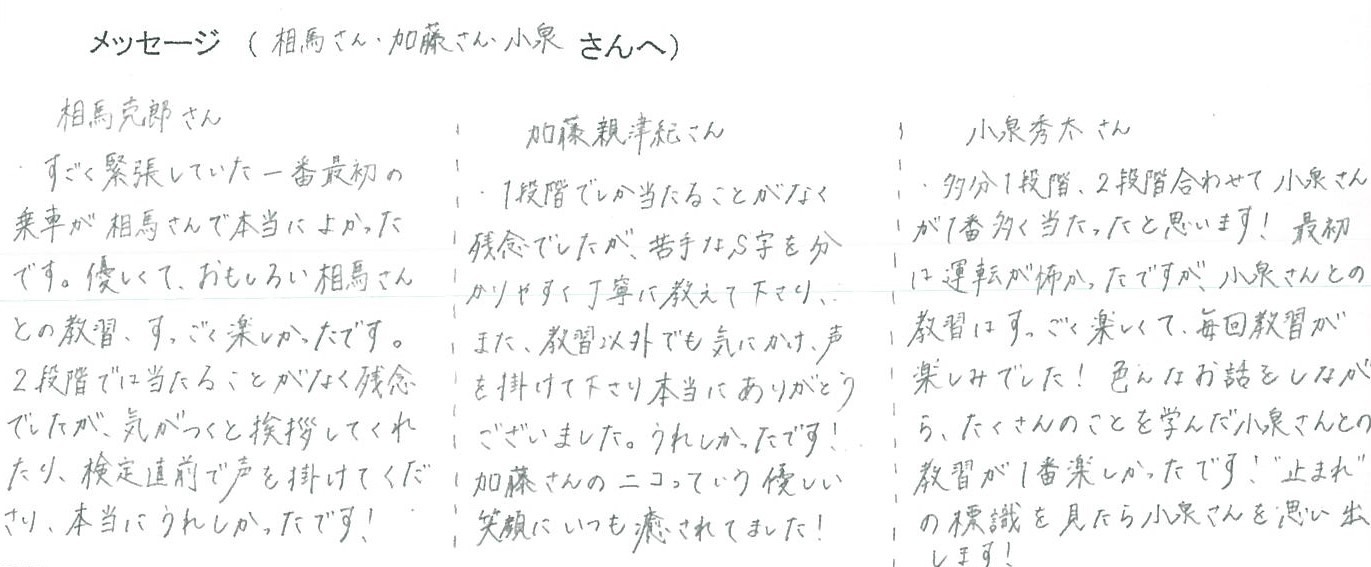 メッセージ ( 相馬さん・加藤さん・小泉 さんへ)
相馬克郎さん
・すごく緊張していた一番最初の
乗車が相馬さんで本当によかった
です。優しくて、おもしろい相馬さん
との教習、すっごく楽しかったです。
2段階では当たることがなく残念
でしたが、気がつくと挨拶してくれ
たり、検定直前で声を掛けてくだ
さり、本当にうれしかったです!
加藤親津紀さん
・1段階でしか当たることがなく
残念でしたが、苦手なS字を分
かりやすく丁寧に教えて下さり、
また、教習以外でも気にかけ、声
を掛けて下さり本当にありがとう
ございました。うれしかったです!
加藤さんのニコっていう優しい
笑顔にいつも癒されてました!
小泉秀太さん
・多分1段階、2段階合わせて小泉さん
が1番多く当たったと思います! 最初
は運転が怖かったですが、小泉さんとの
教習はすっごく楽しくて、毎回教習が
楽しみでした! 色んなお話をしなが
ら、たくさんのことを学んだ小泉さんとの
教習が1番楽しかったです!"止まれ"
の標識を見たら小泉さんを思い出
します!